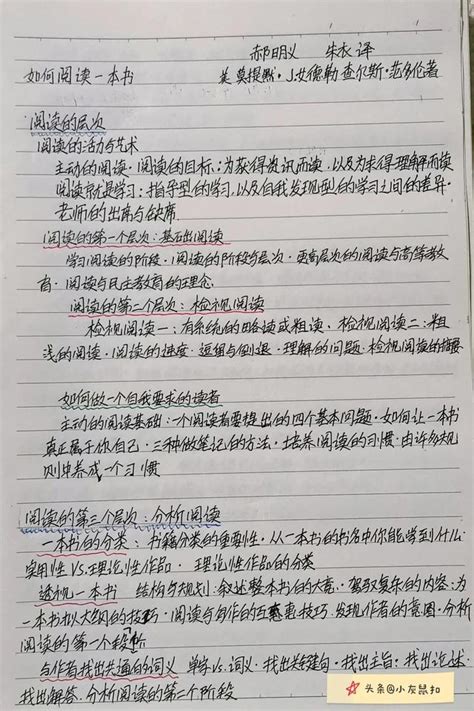 郝明义 朱衣译
如何阅读一本书 美 莫提默·J.艾德勒 查尔斯·范多伦著
阅读的层次
阅读的活力与艺术
主动的阅读·阅读的目标:为获得资讯而读,以及为求得理解而读
阅读就是学习:指导型的学习,以及自我发现型的学习之间的差异·
老师的出席与缺席
阅读的第一个层次:基础阅读
学习阅读的阶段·阅读的阶段与层次·更高层次的阅读与高等教
育·阅读与民主教育的理念
阅读的第二个层次:检视阅读
检视阅读一:有系统的略读或粗读·检视阅读二:粗
浅的阅读·阅读的速度·逗留与倒退·理解的问题·检视阅读的摘要
如何做一个自我要求的读者
主动的阅读基础:一个阅读者要提出的四个基本问题·如何让一本书
真正属于你自己·三种做笔记的方法·培养阅读的习惯·由许多规
则中养成一个习惯
阅读的第三个层次:分析阅读
一本书的分类:书籍分类的重要性·从一本书的书名中你能学到什么·
实用性VS.理论性作品·理论性作品的分类
透视一本书 结构与规划:叙述整本书的大意·驾驭复杂的内容:为
一本书拟大纲的技巧·阅读与写作的互惠技巧·发现作者的意图·分析
阅读的第一个阶段
与作者找出共通的词义 单字vs.词义·找出关键句·找出主旨·找出论述
找出解答·分析阅读的第二个阶段
头条@小灰鼠扣